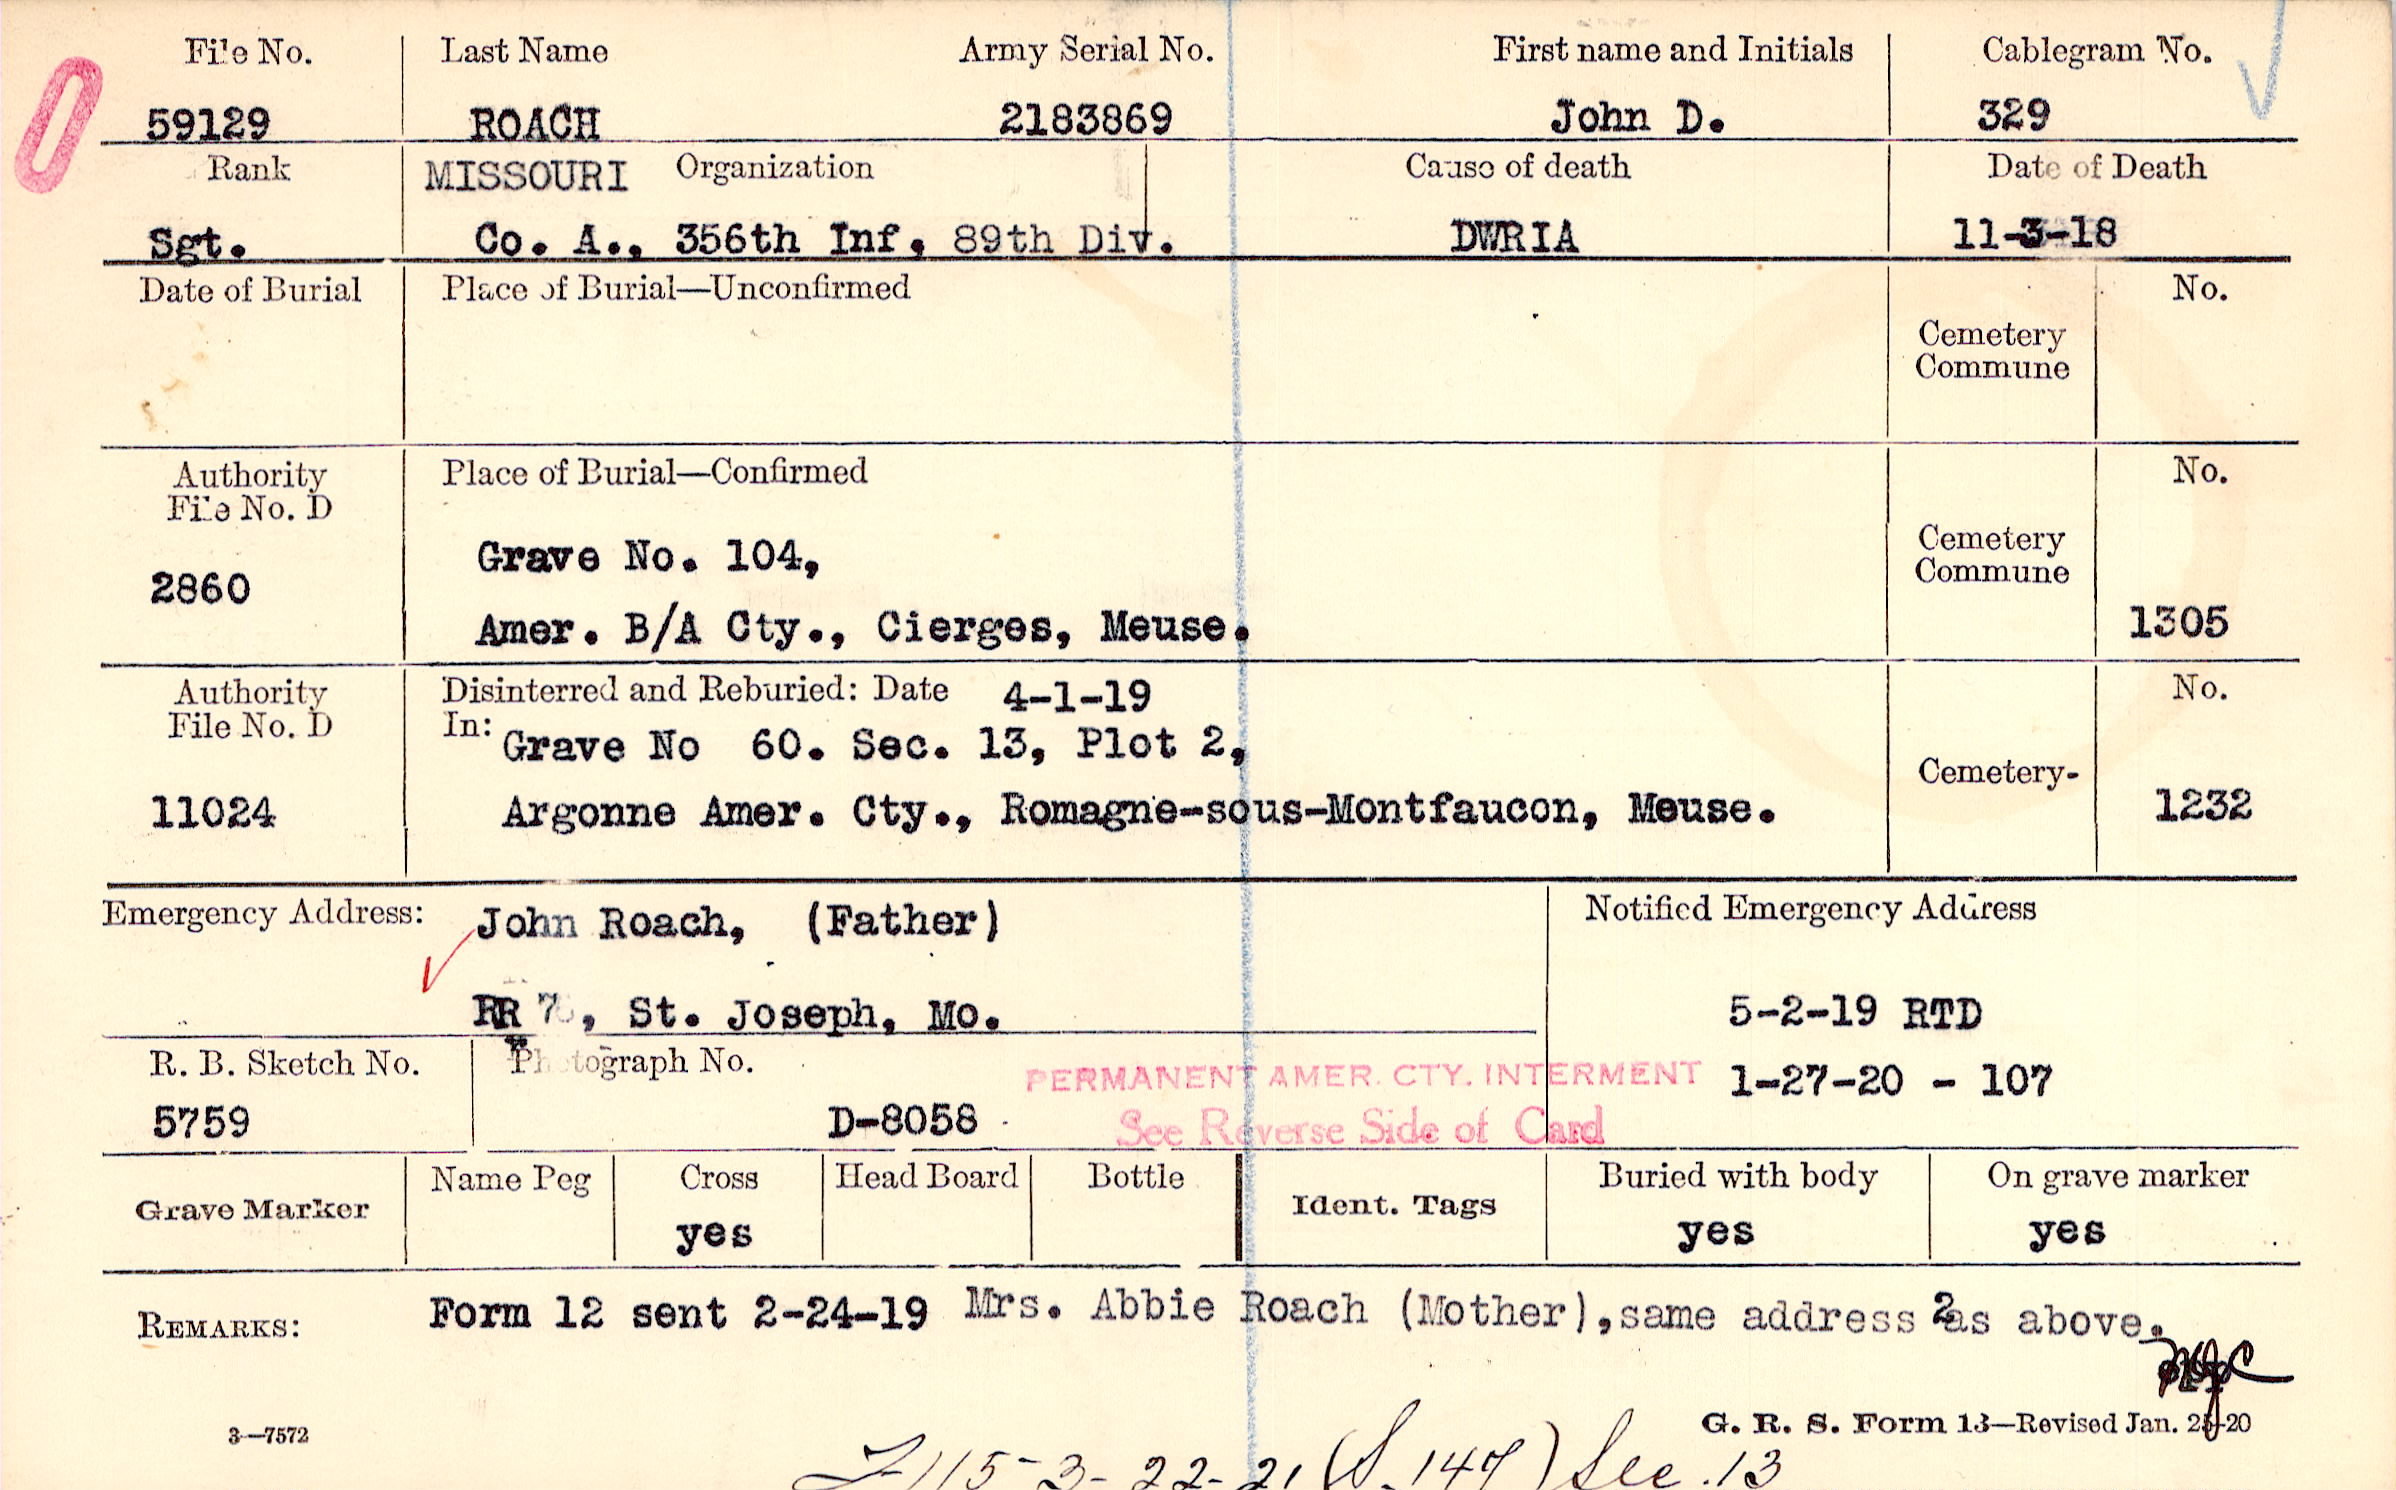 File No. Last Name Army Serial No. First name and Initials Cablegram No.
59129 ROACH 2183869 John D. 329
Rank MISSOURI Organization Cause of death Date of Death
Sgt. Co. A., 356th Inf, 89th Div. DWRIA 11-3-18
Date of Burial Place of Burial—Unconfirmed No.
Cemetery
Commune
Authority Place of Burial—Confirmed No.
File No. D
Grave No. 104, Cemetery
2860 Commune
Amer. B/A Cty., Cierges, Meuse. 1305
Authority Disinterred and Reburied: Date 4-1-19 No.
File No. D In: Grave No 60. Sec. 13, Plot 2,
Cemetery-
11024 Argonne Amer. Cty., Romagne-sous-Montfaucon, Meuse. 1232
Emergency Address: John Roach, (Father) Notified Emergency Address
RR 7, St. Joseph, Mo. 5-2-19 RTD
R. B. Sketch No. Photograph No. PERMANENT AMER. CTY. INTERMENT 1-27-20 - 107
5759 D-8058 See Reverse Side of Card
Name Peg Cross Head Board Bottle Buried with body On grave marker
Grave Marker yes Ident. Tags yes yes
REMARKS: Form 12 sent 2-24-19 Mrs. Abbie Roach (Mother),same address as above.
3—7572 G. R. S. Form 13—Revised Jan. 25-20
115-3-22-21 (S. 147) Sec. 13